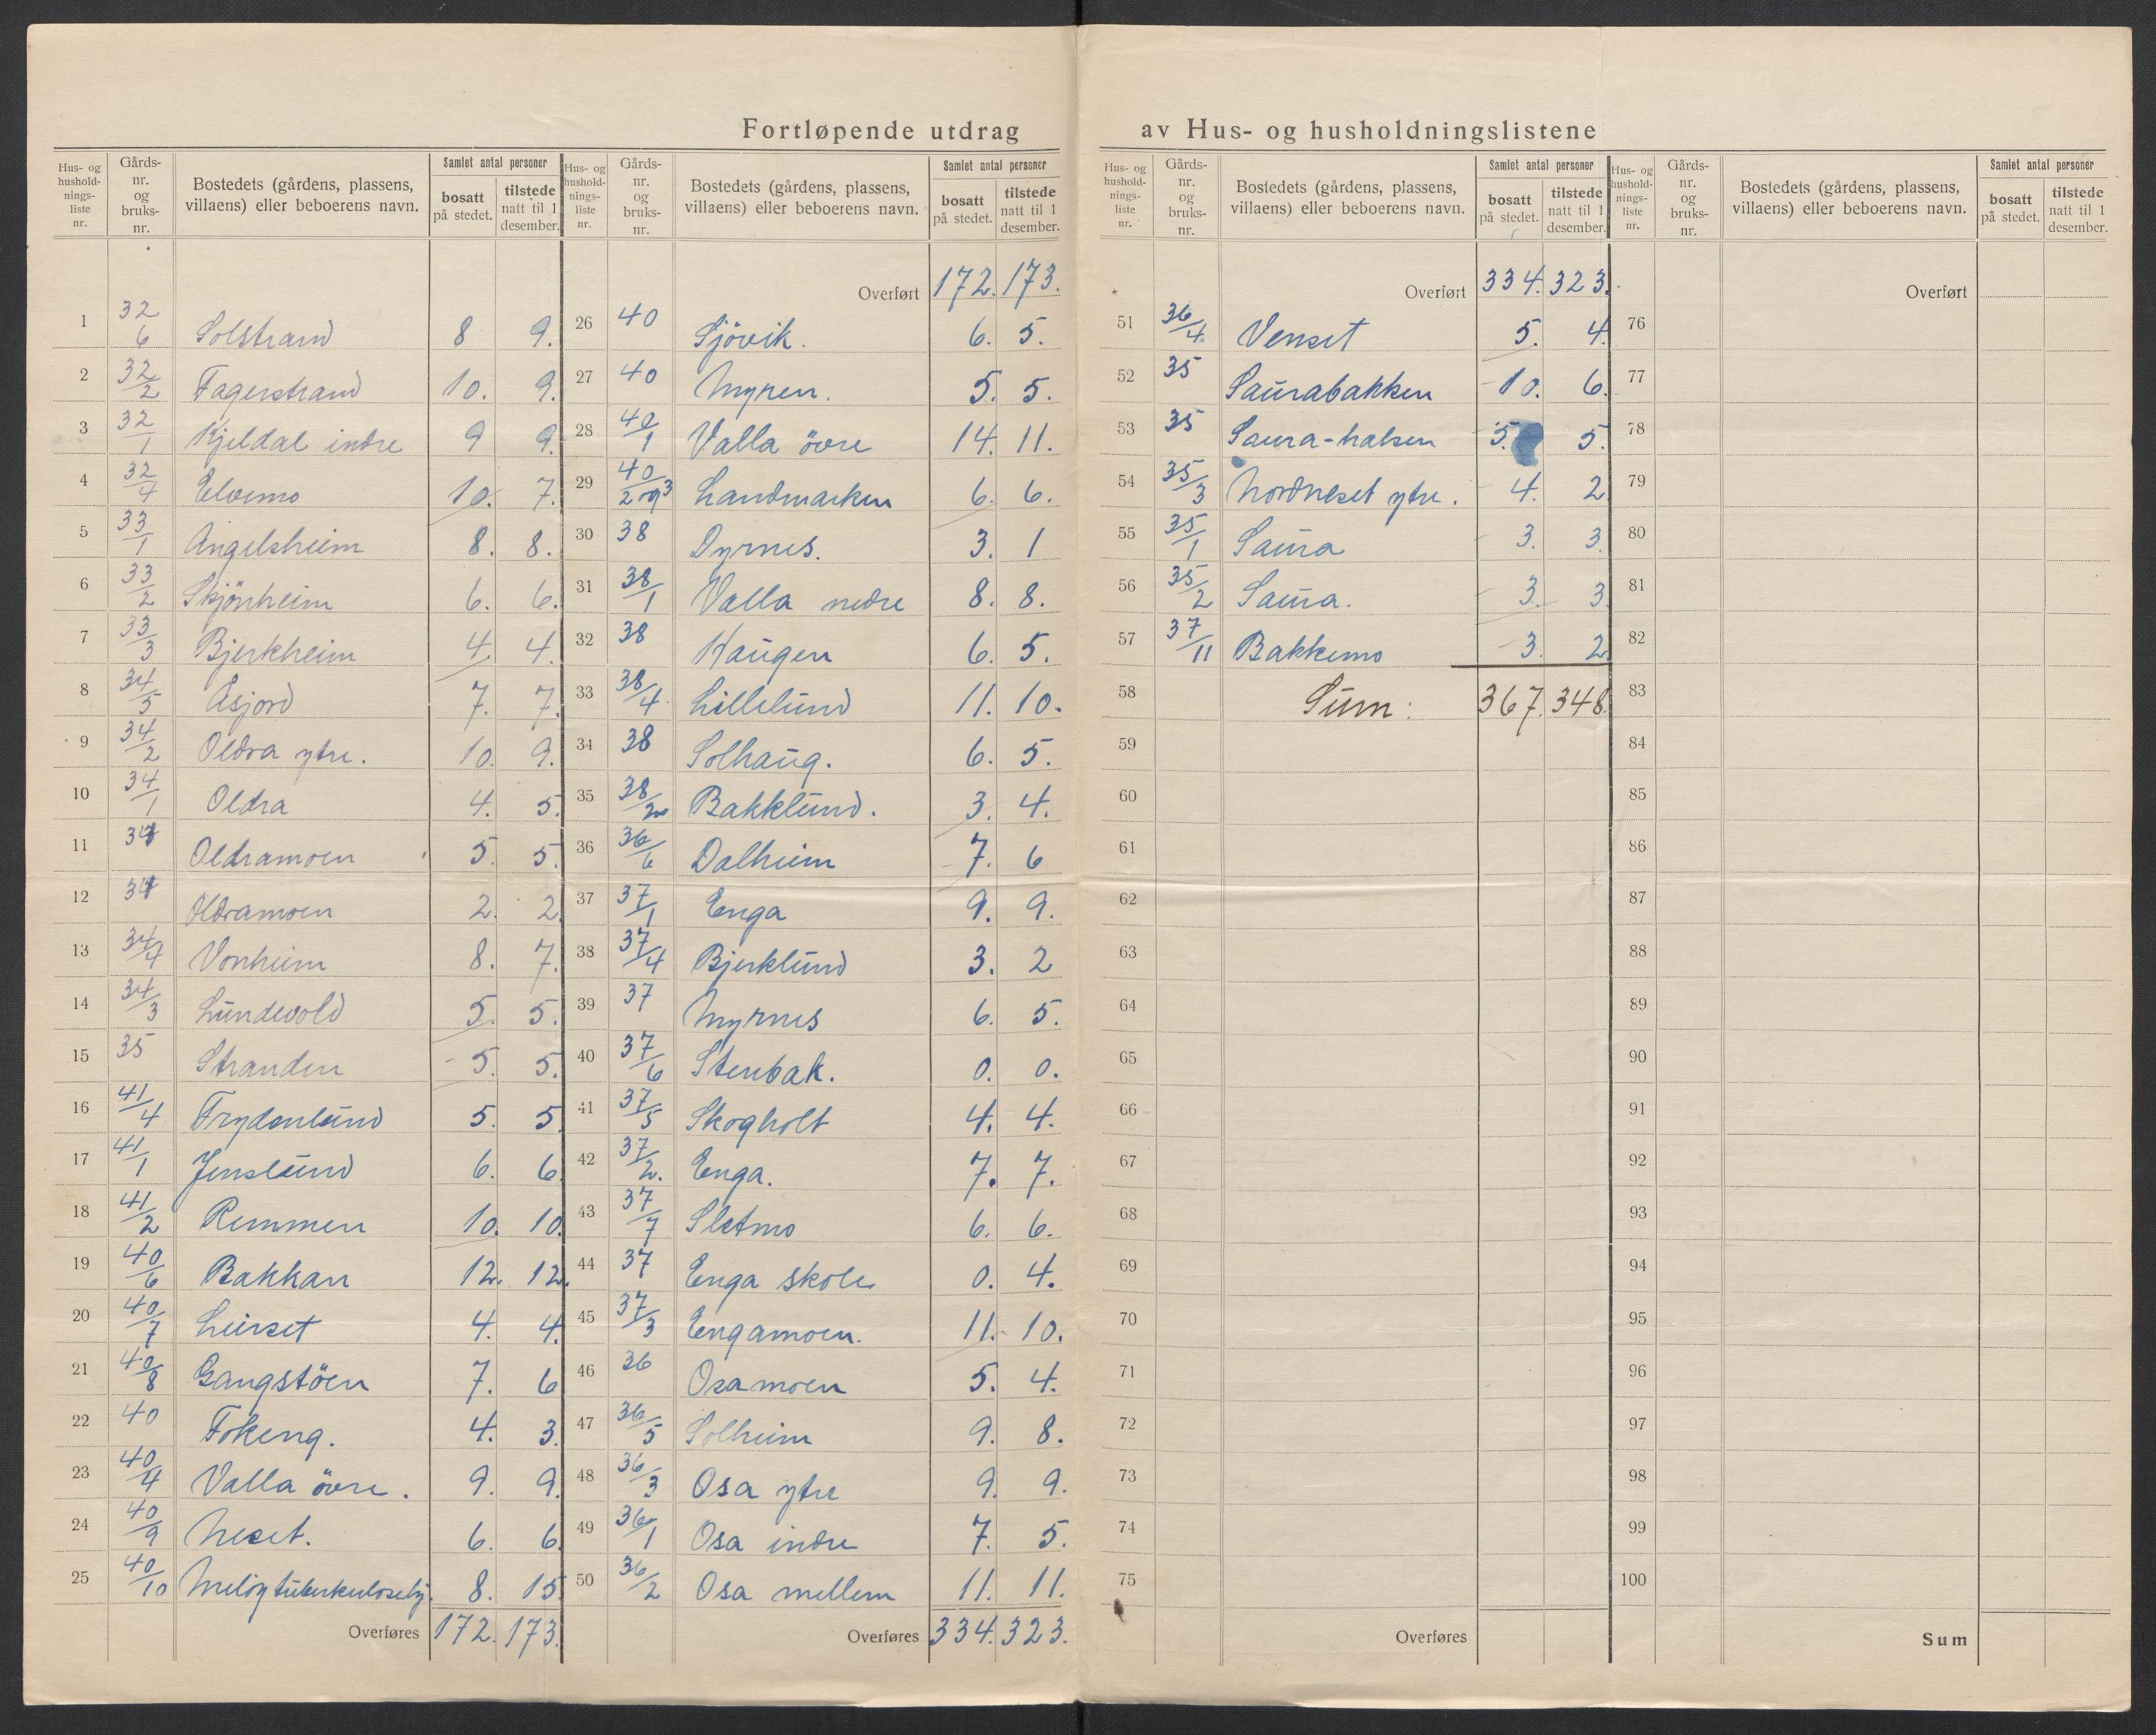 Fortløpende utdrag av Hus- og husholdningslistene
Hus- og hushold-nings-liste nr. | Gårds-nr. og bruks-nr. | Bostedets (gårdens, plassens, villaens) eller beboerens navn. | Samlet antal personer | bosatt på stedet. | tilstede natt til 1 desember.
1 32/6 Solstrand 8 9.
2 32/2 Fagerstrand 10. 9.
3 32/1 Kjeldal indre 9 9.
4 32/4 Elvemo 10. 7.
5 33/1 Angelsheim 8. 8.
6 33/2 Skjönheim 6. 6.
7 33/3 Bjerkheim 4. 4.
8 34/5 Åsjord 7. 7.
9 34/2 Oldra ytre. 10. 9.
10 34/1 Oldra 4. 5.
11 34 Oldramoen 5. 5.
12 34 Oldramoen 2. 2.
13 34/4 Vonheim 8. 7.
14 34/3 Lundevold 5. 5.
15 35 Stranden 5. 5.
16 41/4 Frydenlund 5. 5
17 41/1 Jenslund 6. 6.
18 41/2 Remmen 10. 10.
19 40/6 Bakkan 12. 12.
20 40/7 Leirset 4. 4.
21 40/8 Gangstöen 7. 6
22 40 Fokeng. 4. 3.
23 40/4 Valla övre. 9. 9.
24 40/9 Neset. 6. 6.
25 40/10 Melöy tuberkuloseby. 8. 15
Overføres 172. 173.
Hus- og hushold-nings-liste nr. | Gårds-nr. og bruks-nr. | Bostedets (gårdens, plassens, villaens) eller beboerens navn. | Samlet antal personer | bosatt på stedet. | tilstede natt til 1 desember.
Overført 172. 173.
26 40 Sjövik. 6. 5.
27 40 Myren. 5. 5.
28 40/1 Valla övre 14. 11.
29 40/2 og 3 Landmarken 6. 6.
30 38 Dyrnes. 3. 1
31 38/1 Valla nedre 8. 8.
32 38 Haugen 6. 5.
33 38/4 Lillelund 11. 10.
34 38 Solhaug. 6. 5.
35 38/2 Bakklund. 3. 4.
36 36/6 Dalheim 7. 6
37 37/1 Enga 9. 9.
38 37/4 Bjerklund 3. 2
39 37 Myrnes 6. 5.
40 37/6 Stenbak. 0. 0.
41 37/5 Skogholt 4. 4.
42 37/2. Enga. 7. 7.
43 37/7 Sletmo 6. 6.
44 37 Enga skole 0. 4.
45 37/3 Engamoen. 11. 10.
46 36 Osamoen 5. 4.
47 36/5 Solheim 9. 8.
48 36/3 Osa ytre 9. 9.
49 36/1 Osa indre 7. 5.
50 36/2 Osa mellem 11. 11.
Overføres 334. 323.
Hus- og hushold-nings-liste nr. | Gårds-nr. og bruks-nr. | Bostedets (gårdens, plassens, villaens) eller beboerens navn. | Samlet antal personer | bosatt på stedet. | tilstede natt til 1 desember.
Overført 334. 323.
51 36/4. Venset 5. 4.
52 35 Saurabakken 10. 6.
53 35 Saura-halsen 5. 5.
54 35/3 Nordneset ytre. 4. 2
55 35/1 Saura 3. 3.
56 35/2 Saura. 3. 3
57 37/11 Bakkemo 3. 2.
58 Sum: 367. 348.
59
60
61
62
63
64
65
66
67
68
69
70
71
72
73
74
75
Overføres
Hus- og hushold-nings-liste nr. | Gårds-nr. og bruks-nr. | Bostedets (gårdens, plassens, villaens) eller beboerens navn. | Samlet antal personer | bosatt på stedet. | tilstede natt til 1 desember.
Overført
76
77
78
79
80
81
82
83
84
85
86
87
88
89
90
91
92
93
94
95
96
97
98
99
100
Sum